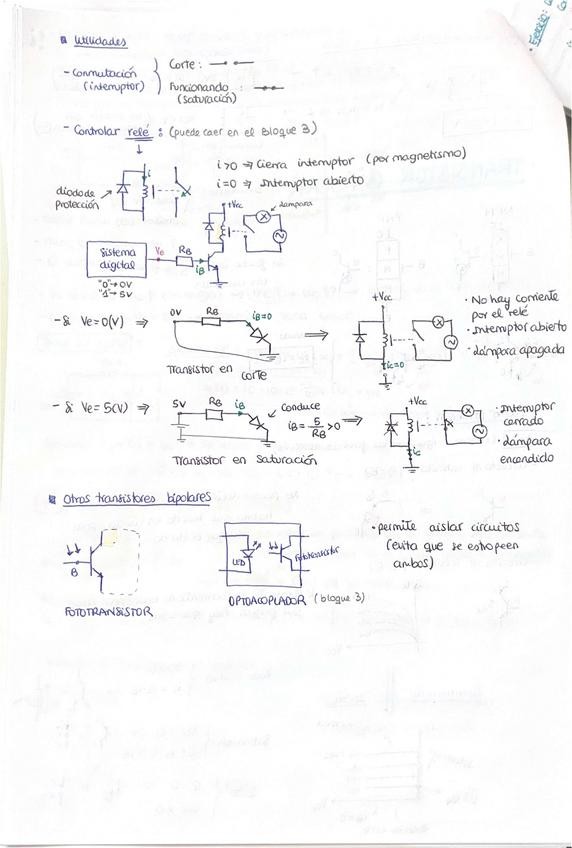 Utilidades
- Conmutación (interruptor)
Corte:
Funcionando (saturación)
- Controlar relé: (puede caer en el Bloque 3)
i
i>0 ⇒ Cierra interruptor (por magnetismo)
i=0 ⇒ Interruptor abierto
diodo de protección
+Vcc
Lámpara
Sistema digital
Ve
RB
iB
"0" → 0V
"1" → 5V
- Si Ve = 0(V) ⇒
0V
RB
iB=0
⇒
Transistor en corte
+Vcc
ic=0
· No hay corriente por el relé
· Interruptor abierto
· Lámpara apagada
- Si Ve = 5(V) ⇒
5V
RB
iB
Conduce
iB = 5/RB >0 ⇒
Transistor en saturación
+Vcc
ic
· Interruptor cerrado
· Lámpara encendido
Otros transistores bipolares
B
FOTOTRANSISTOR
LED
Fototransistor
OPTOACOPLADOR (bloque 3)
· permite aislar circuitos
(evita que se estropeen
ambos)